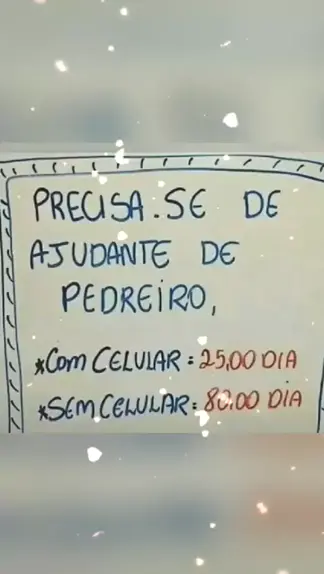 PRECISA.SE DE
AJUDANTE DE
PEDREIRO,
*COM CELULAR: 25,00 DIA
*SEM CELULAR: 80,00 DIA